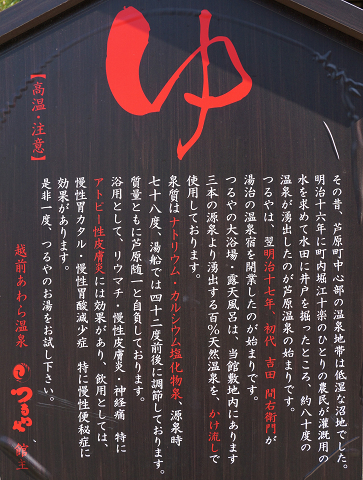 ゆ
その昔、芦原町中心部の温泉地帯は低湿な沼地でした。
明治十六年に町内堀江十楽のひとりの農民が灌漑用の
水を求めて水田に井戸を掘ったところ、約八十度の
温泉が湧出したのが芦原温泉の始まりです。
つるやは、翌明治十七年、初代 吉田 間右衛門が
湯治の温泉宿を開業したのが始まりです。
つるやの大浴場・露天風呂は、当館敷地内にあります
三本の源泉より湧出する百%天然温泉を、かけ流しで
使用しております。
泉質はナトリウム・カルシウム塩化物泉、源泉時
七十八度、湯船では四十二度前後に調節しております。
質量ともに芦原随一と自負しております。
浴用として、リウマチ・慢性皮膚炎・神経痛 特に
アトピー性皮膚炎には効果があり、飲用としては、
慢性胃カタル・慢性胃酸減少症 特に慢性便秘症に
効果があります。
是非一度、つるやのお湯をお試し下さい。
【高温・注意】
越前あわら温泉 つるや 館主